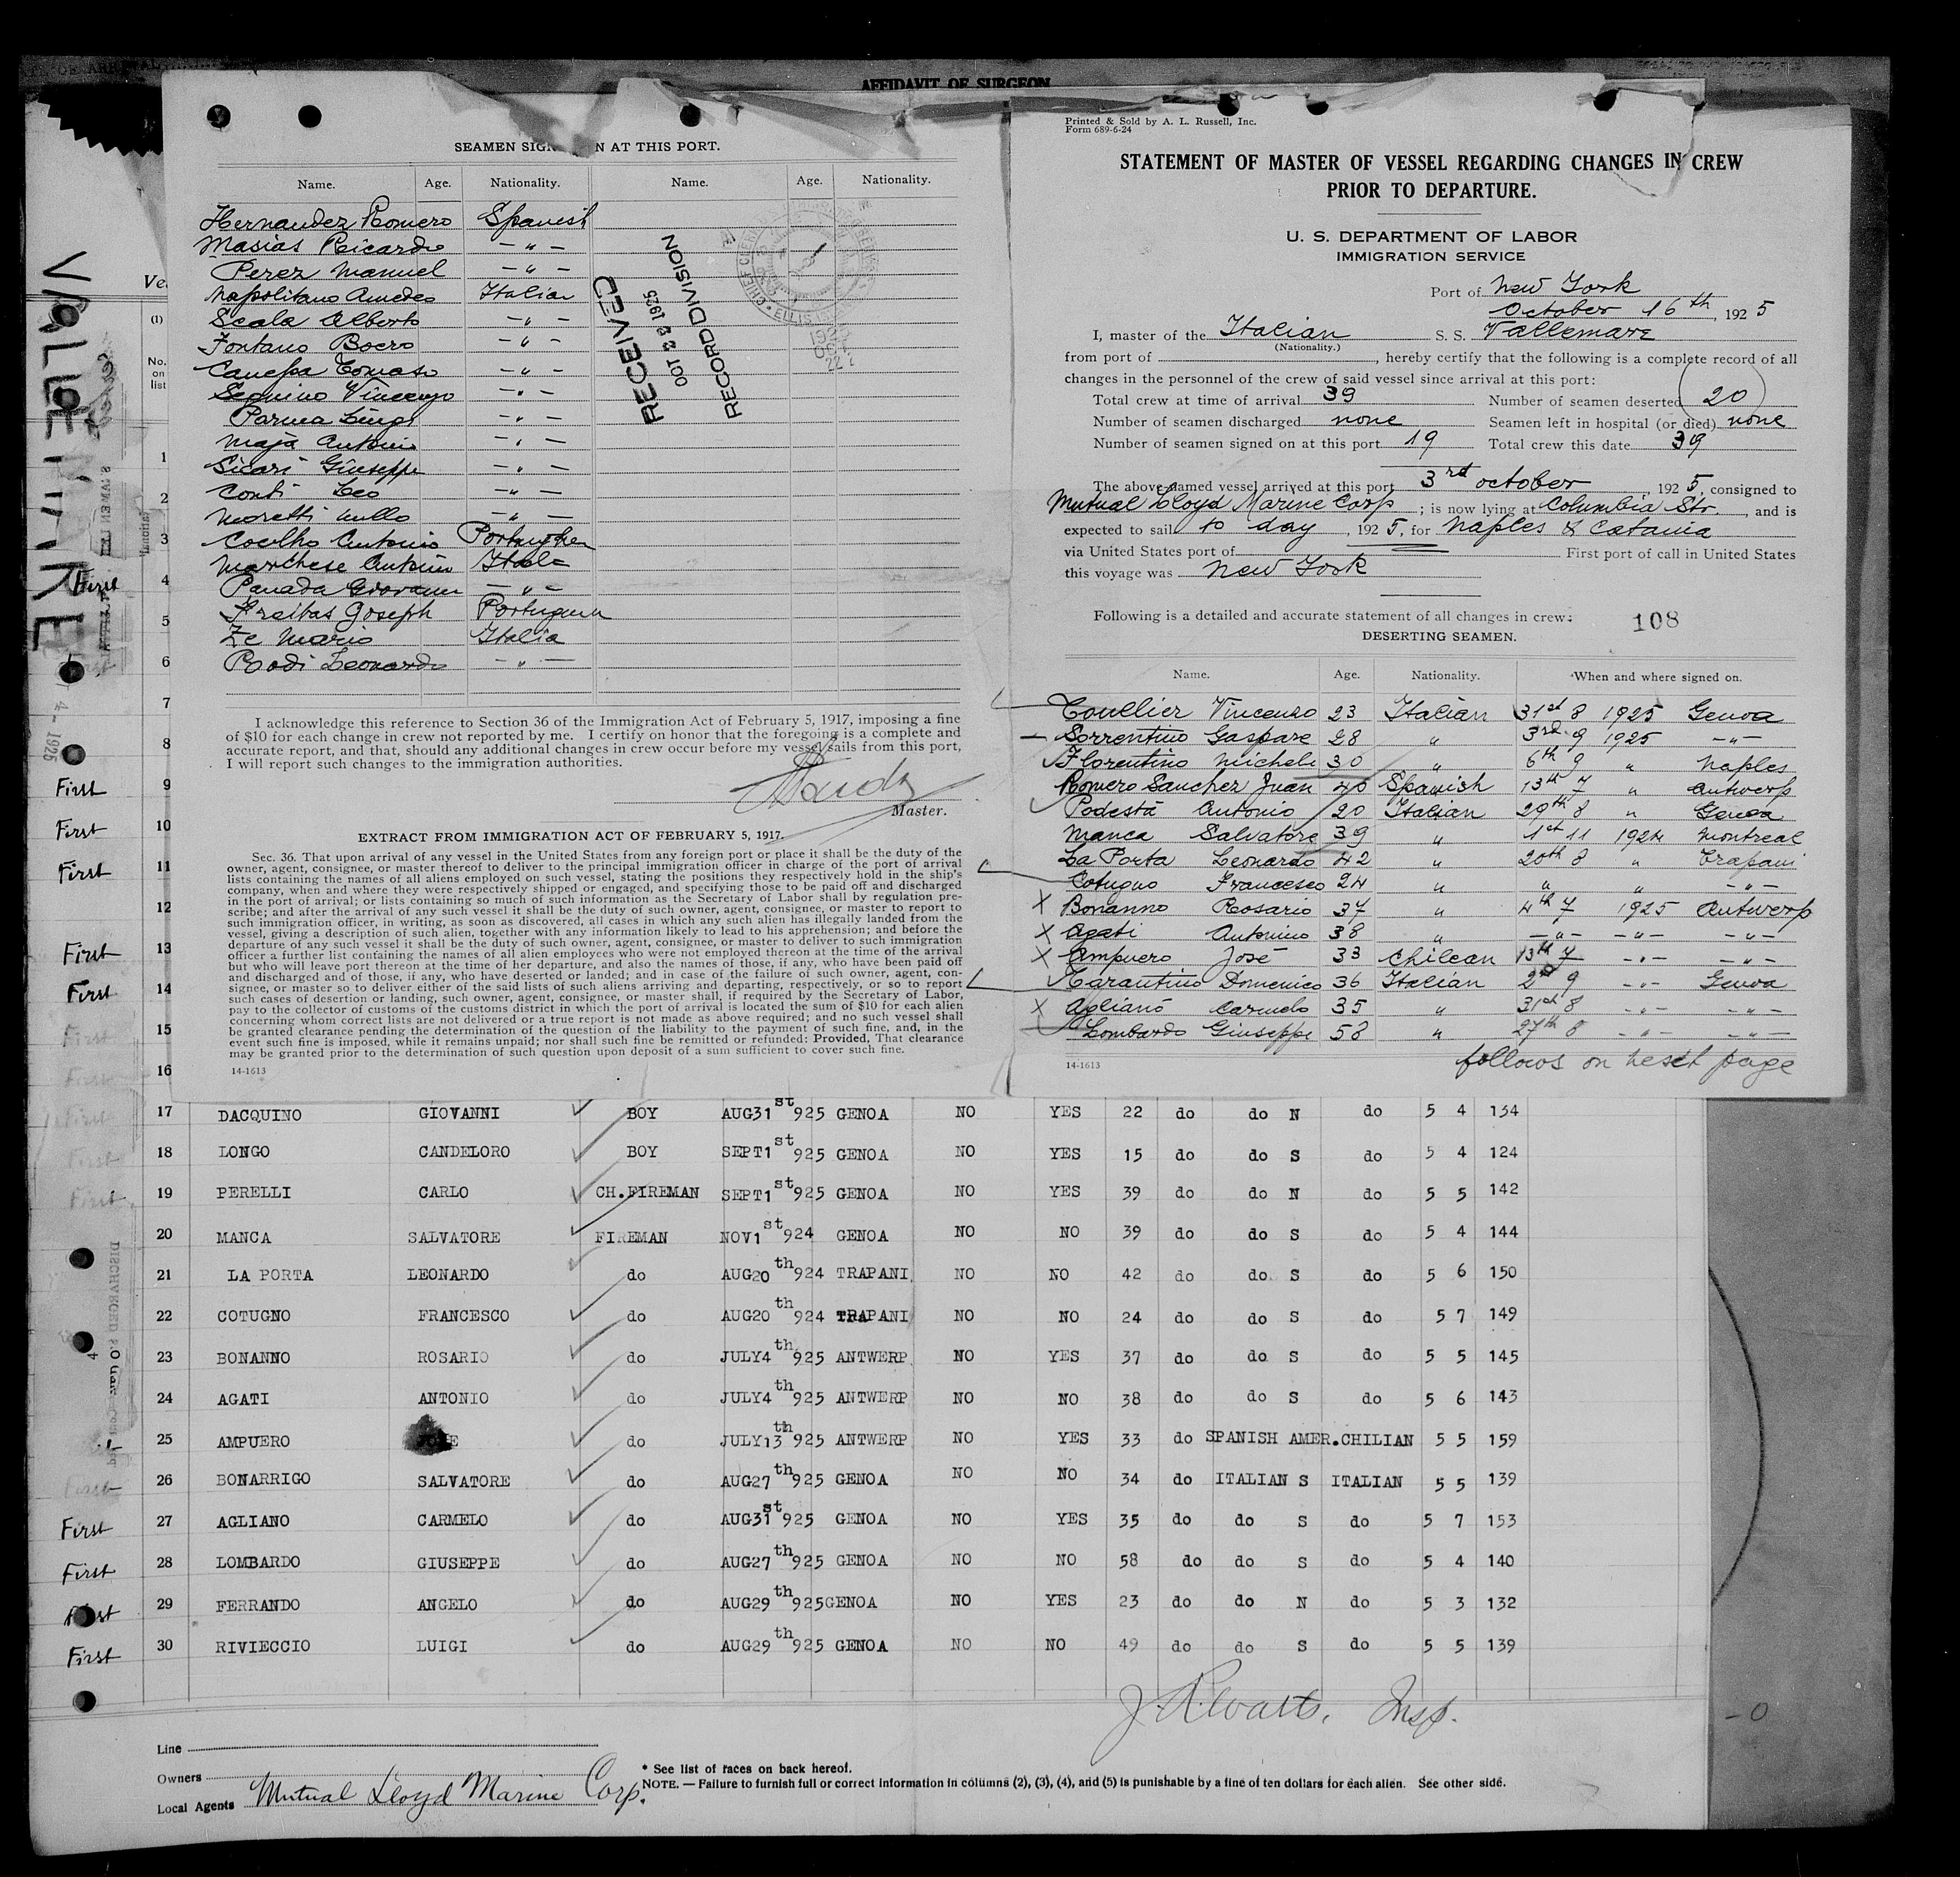 AFFIDAVIT OF SURGEON
VALLEMARE
SEAMEN SIGN N AT THIS PORT.
Name. Age. Nationality. Name. Age. Nationality.
Hernandez Romero Spanish
Masias Ricardo — " —
Perez Manuel — " —
Napolitano Amedeo Italian
Scala Alberto — " —
Fontano Boero — " —
Canepa Tomaso — " —
Seguino Vincenzo — " —
Parma Luigi — " —
Maja Antonio — " —
Sicari Giuseppe — " —
Conti Leo — " —
Moretti Nullo — " —
Coelho Antonio
Marchese Antonin
Panada Giovanni — " —
Freitas Joseph
Ze Mario Italia
Rodi Leonardo — " —
RECEIVED
OCT 22 1925
RECORD DIVISION
I acknowledge this reference to Section 36 of the Immigration Act of February 5, 1917, imposing a fine
of $10 for each change in crew not reported by me. I certify on honor that the foregoing is a complete and
accurate report, and that, should any additional changes in crew occur before my vessel sails from this port,
I will report such changes to the immigration authorities.
Master.
EXTRACT FROM IMMIGRATION ACT OF FEBRUARY 5, 1917.
Sec. 36. That upon arrival of any vessel in the United States from any foreign port or place it shall be the duty of the
owner, agent, consignee, or master thereof to deliver to the principal immigration officer in charge of the port of arrival
lists containing the names of all aliens employed on such vessel, stating the positions they respectively hold in the ship's
company, when and where they were respectively shipped or engaged, and specifying those to be paid off and discharged
in the port of arrival; or lists containing so much of such information as the Secretary of Labor shall by regulation pre-
scribe; and after the arrival of any such vessel it shall be the duty of such owner, agent, consignee, or master to report to
such immigration officer, in writing, as soon as discovered, all cases in which any such alien has illegally landed from the
vessel, giving a description of such alien, together with any information likely to lead to his apprehension; and before the
departure of any such vessel it shall be the duty of such owner, agent, consignee, or master to deliver to such immigration
officer a further list containing the names of all alien employees who were not employed thereon at the time of the arrival
but who will leave port thereon at the time of her departure, and also the names of those, if any, who have been paid off
and discharged and of those, if any, who have deserted or landed; and in case of the failure of such owner, agent, con-
signee, or master so to deliver either of the said lists of such aliens arriving and departing, respectively, or so to report
such cases of desertion or landing, such owner, agent, consignee, or master shall, if required by the Secretary of Labor,
pay to the collector of customs of the customs district in which the port of arrival is located the sum of $10 for each alien
concerning whom correct lists are not delivered or a true report is not made as above required; and no such vessel shall
be granted clearance pending the determination of the question of the liability to the payment of such fine, and, in the
event such fine is imposed, while it remains unpaid; nor shall such fine be remitted or refunded: Provided, That clearance
may be granted prior to the determination of such question upon deposit of a sum sufficient to cover such fine.
14-1613
Printed & Sold by A. L. Russell, Inc.
Form 689-6-24
STATEMENT OF MASTER OF VESSEL REGARDING CHANGES IN CREW
PRIOR TO DEPARTURE.
U. S. DEPARTMENT OF LABOR
IMMIGRATION SERVICE
Port of New York
October 16th, 1925
I, master of the Italian S. S. Vallemare
(Nationality.)
from port of , hereby certify that the following is a complete record of all
changes in the personnel of the crew of said vessel since arrival at this port:
Total crew at time of arrival 39 Number of seamen deserted 20
Number of seamen discharged none Seamen left in hospital (or died) none
Number of seamen signed on at this port 19 Total crew this date 39
The above-named vessel arrived at this port 3rd october, 1925, consigned to
Mutual Lloyd Marine Corp; is now lying at Columbia Str, and is
expected to sail to day, 1925, for Naples & Catania
via United States port of First port of call in United States
this voyage was New York
Following is a detailed and accurate statement of all changes in crew:
108
DESERTING SEAMEN.
Name. Age. Nationality. When and where signed on.
Vincenzo 23 Italian 31st 8 1925 Genoa
Sorrentino Gaspare 28 " 3rd 9 1925 — " —
Florentino Michele 30 " 6th 9 " Naples
Romero Sanchez Juan 40 Spanish 13th 7 " Antwerp
Podestà Antonio 20 Italian 29th 8 " Genoa
Manca Salvatore 39 " 1st 11 1924 Montreal
La Porta Leonardo 42 " 20th 8 " Trapani
Cotugno Francesco 24 " " " — " —
X Bonanno Rosario 37 " 4th 7 1925 Antwerp
X Agati Antonino 38 " — " — — " — — " —
X Ampuero José 33 Chilean 13th 7 — " — — " —
Tarantino Domenico 36 Italian 2nd 9 — " — Genoa
X Aglianò Carmelo 35 " 31st 8 — " — — " —
Lombardo Giuseppe 58 " 27th 8 — " — — " —
follows on next page
14-1613
Ve
(1)
No. on list
1
2
3
4
5
6
7
8
First 9
First 10
First 11
12
First 13
First 14
First 15
First 16
First 17 DACQUINO GIOVANNI BOY AUG31st 925 GENOA NO YES 22 do do N do 5 4 134
First 18 LONGO CANDELORO BOY SEPT1st 925 GENOA NO YES 15 do do S do 5 4 124
First 19 PERELLI CARLO CH.FIREMAN SEPT1st 925 GENOA NO YES 39 do do N do 5 5 142
20 MANCA SALVATORE FIREMAN NOV1st 924 GENOA NO NO 39 do do S do 5 4 144
21 LA PORTA LEONARDO do AUG20th 924 TRAPANI NO NO 42 do do S do 5 6 150
22 COTUGNO FRANCESCO do AUG20th 924 TRAPANI NO NO 24 do do S do 5 7 149
23 BONANNO ROSARIO do JULY4th 925 ANTWERP NO YES 37 do do S do 5 5 145
24 AGATI ANTONIO do JULY4th 925 ANTWERP NO NO 38 do do S do 5 6 143
25 AMPUERO JOSE do JULY13th 925 ANTWERP NO YES 33 do SPANISH AMER.CHILIAN 5 5 159
First 26 BONARRIGO SALVATORE do AUG27th 925 GENOA NO NO 34 do ITALIAN S ITALIAN 5 5 139
First 27 AGLIANO CARMELO do AUG31st 925 GENOA NO YES 35 do do S do 5 7 153
First 28 LOMBARDO GIUSEPPE do AUG27th 925 GENOA NO NO 58 do do S do 5 4 140
First 29 FERRANDO ANGELO do AUG29th 925 GENOA NO YES 23 do do N do 5 3 132
First 30 RIVIECCIO LUIGI do AUG29th 925 GENOA NO NO 49 do do S do 5 5 139
J. R. Watts, Insp.
Line
Owners
Local Agents Mutual Lloyd Marine Corp.
* See list of races on back hereof.
NOTE. — Failure to furnish full or correct information in columns (2), (3), (4), and (5) is punishable by a fine of ten dollars for each alien. See other side.